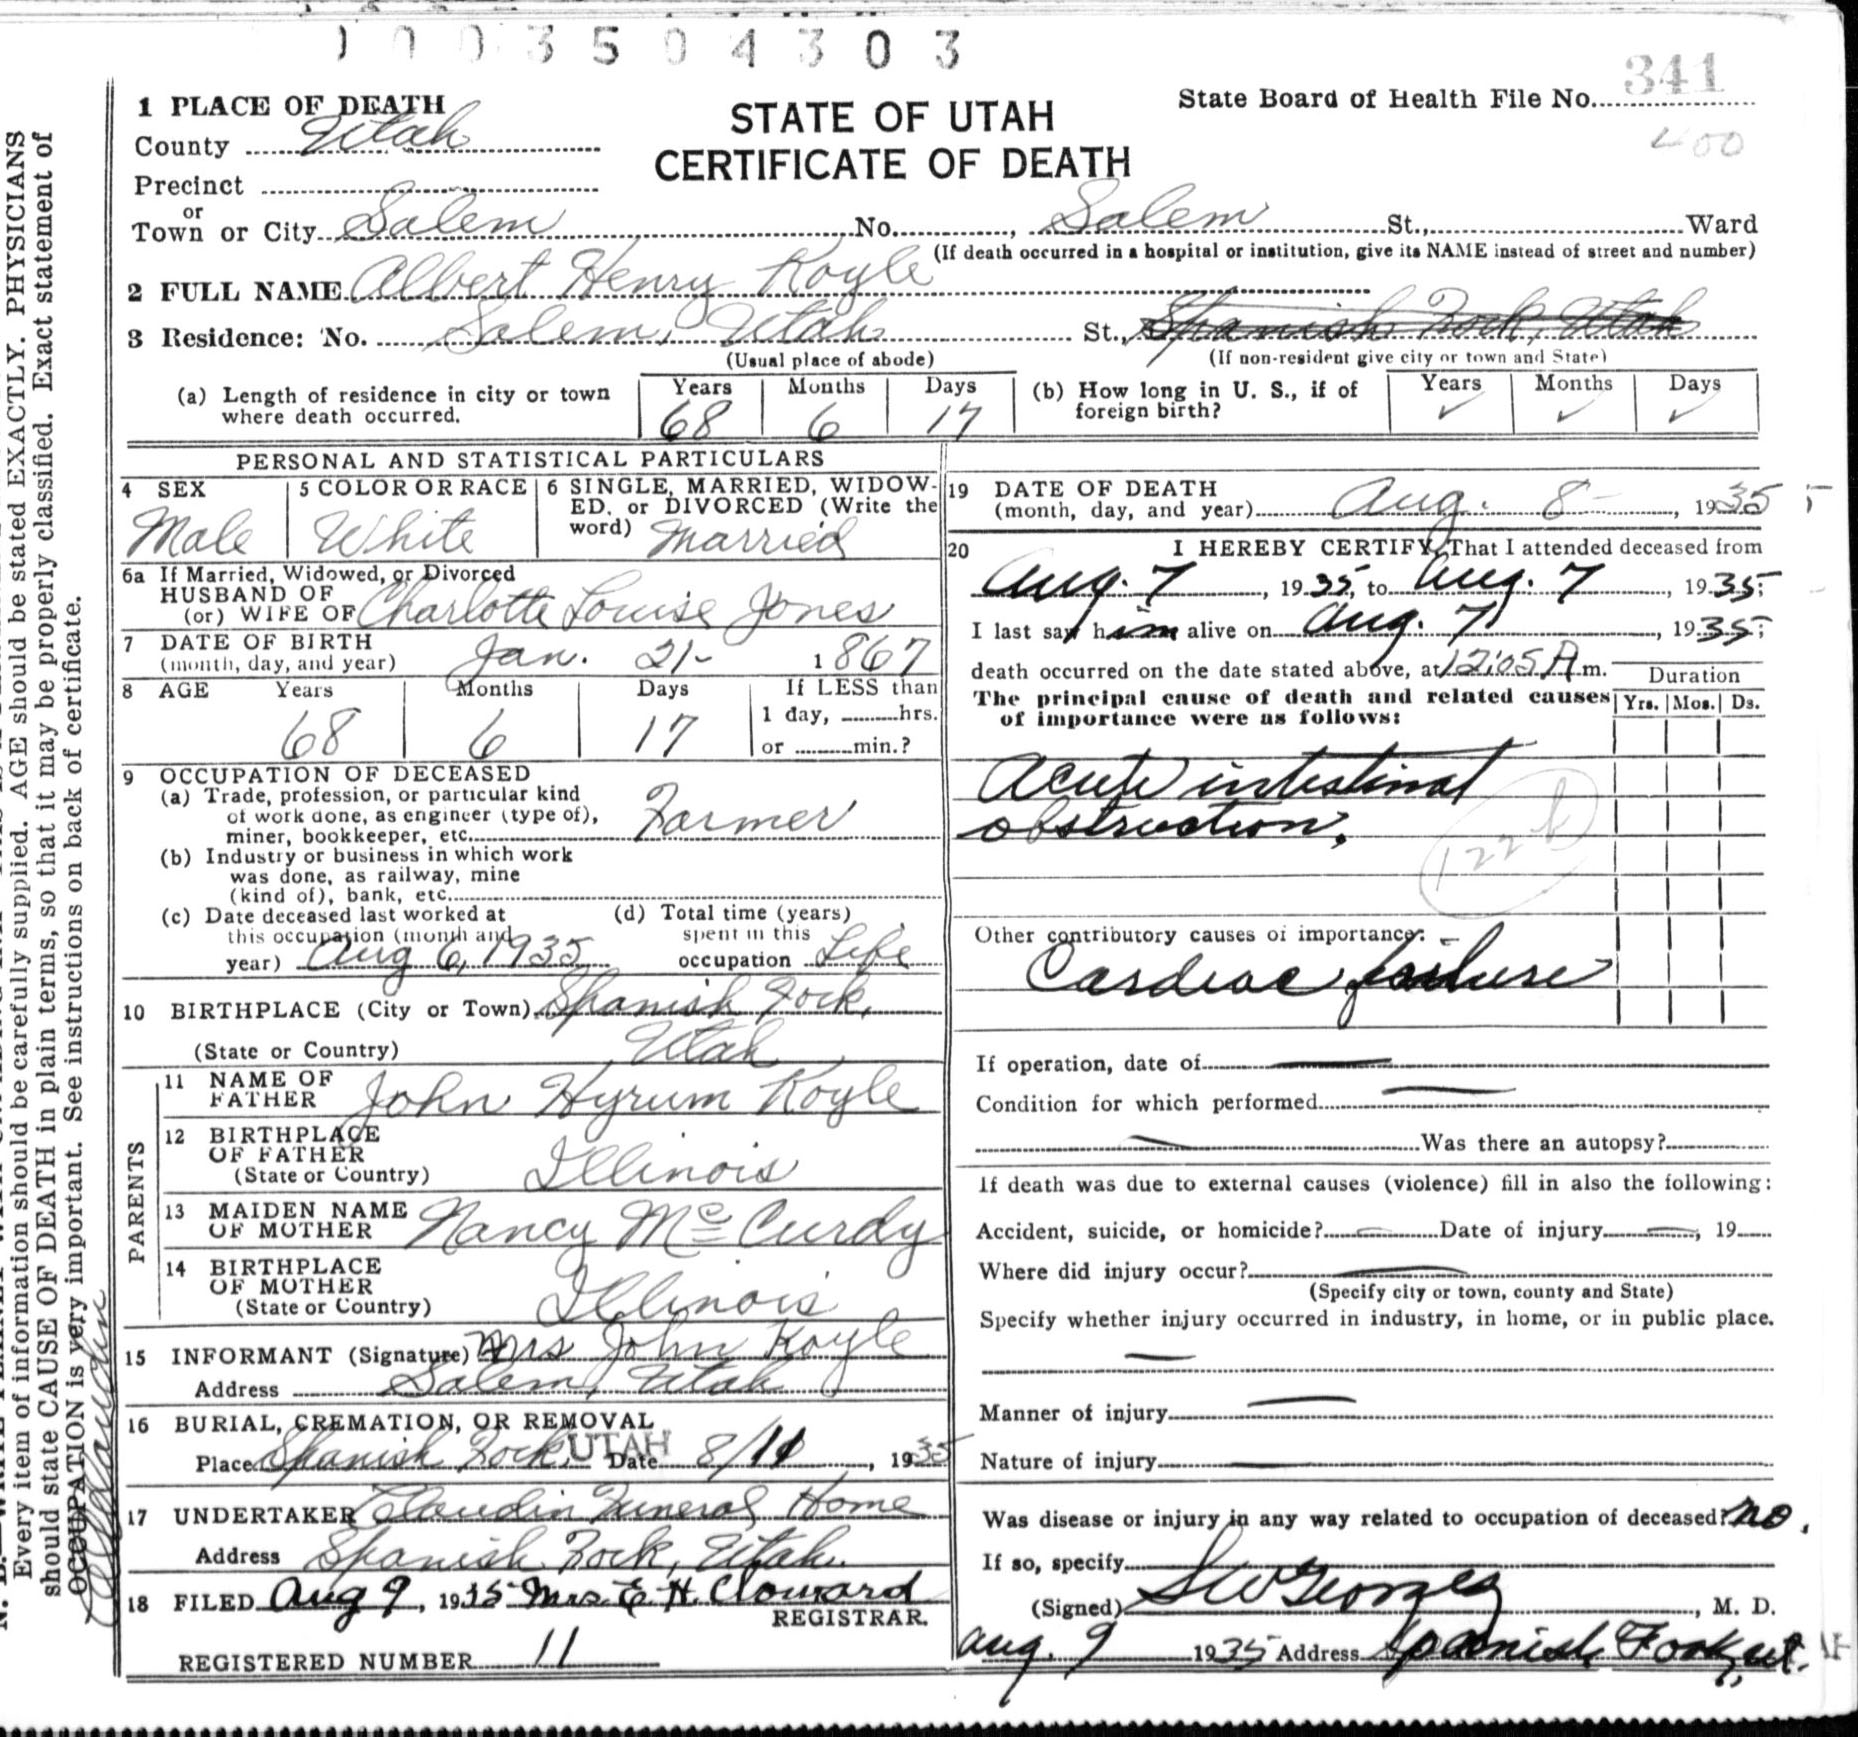 1003504303
341
400
State Board of Health File No.
STATE OF UTAH
CERTIFICATE OF DEATH
1 PLACE OF DEATH
County Utah
Precinct
or
Town or City Salem No. , Salem St., Ward
(If death occurred in a hospital or institution, give its NAME instead of street and number)
2 FULL NAME Albert Henry Koyle
3 Residence: No. Salem, Utah St., Spanish Fork, Utah
(Usual place of abode) (If non-resident give city or town and State)
(a) Length of residence in city or town where death occurred. Years 68 Months 6 Days 17
(b) How long in U. S., if of foreign birth? Years ✓ Months ✓ Days ✓
PERSONAL AND STATISTICAL PARTICULARS
4 SEX Male
5 COLOR OR RACE White
6 SINGLE, MARRIED, WIDOW-
ED, or DIVORCED (Write the
word) Married
6a If Married, Widowed, or Divorced
HUSBAND OF
(or) WIFE OF Charlotte Louise Jones
7 DATE OF BIRTH
(month, day, and year) Jan. 21- 1867
8 AGE Years 68 Months 6 Days 17
If LESS than
1 day, hrs.
or min.?
9 OCCUPATION OF DECEASED
(a) Trade, profession, or particular kind
of work done, as engineer (type of),
miner, bookkeeper, etc. Farmer
(b) Industry or business in which work
was done, as railway, mine
(kind of), bank, etc.
(c) Date deceased last worked at
this occupation (month and
year) Aug 6, 1935
(d) Total time (years)
spent in this
occupation Life
10 BIRTHPLACE (City or Town) Spanish Fork,
(State or Country) Utah
PARENTS
11 NAME OF
FATHER John Hyrum Koyle
12 BIRTHPLACE
OF FATHER
(State or Country) Illinois
13 MAIDEN NAME
OF MOTHER Nancy McCurdy
14 BIRTHPLACE
OF MOTHER
(State or Country) Illinois
15 INFORMANT (Signature) Mrs John Koyle
Address Salem, Utah
16 BURIAL, CREMATION, OR REMOVAL
Place Spanish Fork UTAH Date 8/11, 1935
17 UNDERTAKER Claudin Funeral Home
Address Spanish Fork, Utah.
18 FILED Aug 9, 1935 Mrs. E. H. Cloward
REGISTRAR.
REGISTERED NUMBER 11
19 DATE OF DEATH
(month, day, and year) Aug. 8-, 1935
20 I HEREBY CERTIFY, That I attended deceased from
Aug. 7, 1935, to Aug. 7, 1935;
I last saw him alive on Aug. 7, 1935;
death occurred on the date stated above, at 12:05 A.m.
The principal cause of death and related causes
of importance were as follows:
Duration
Yrs. Mos. Ds.
Acute intestinal
obstruction.
122 b
Other contributory causes of importance:
Cardiac failure
If operation, date of
Condition for which performed
Was there an autopsy?
If death was due to external causes (violence) fill in also the following:
Accident, suicide, or homicide? Date of injury , 19
Where did injury occur?
(Specify city or town, county and State)
Specify whether injury occurred in industry, in home, or in public place.
Manner of injury
Nature of injury
Was disease or injury in any way related to occupation of deceased? no.
If so, specify
(Signed) , M. D.
Aug. 9 1935 Address Spanish Fork, Ut.
Every item of information should be carefully supplied. AGE should be stated EXACTLY. PHYSICIANS
should state CAUSE OF DEATH in plain terms, so that it may be properly classified. Exact statement of
OCCUPATION is very important. See instructions on back of certificate.